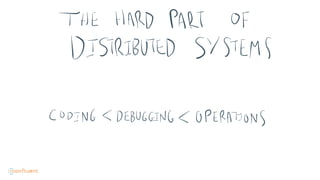 THE HARD PART OF
DISTRIBUTED SYSTEMS
CODING < DEBUGGING < OPERATIONS
confluent